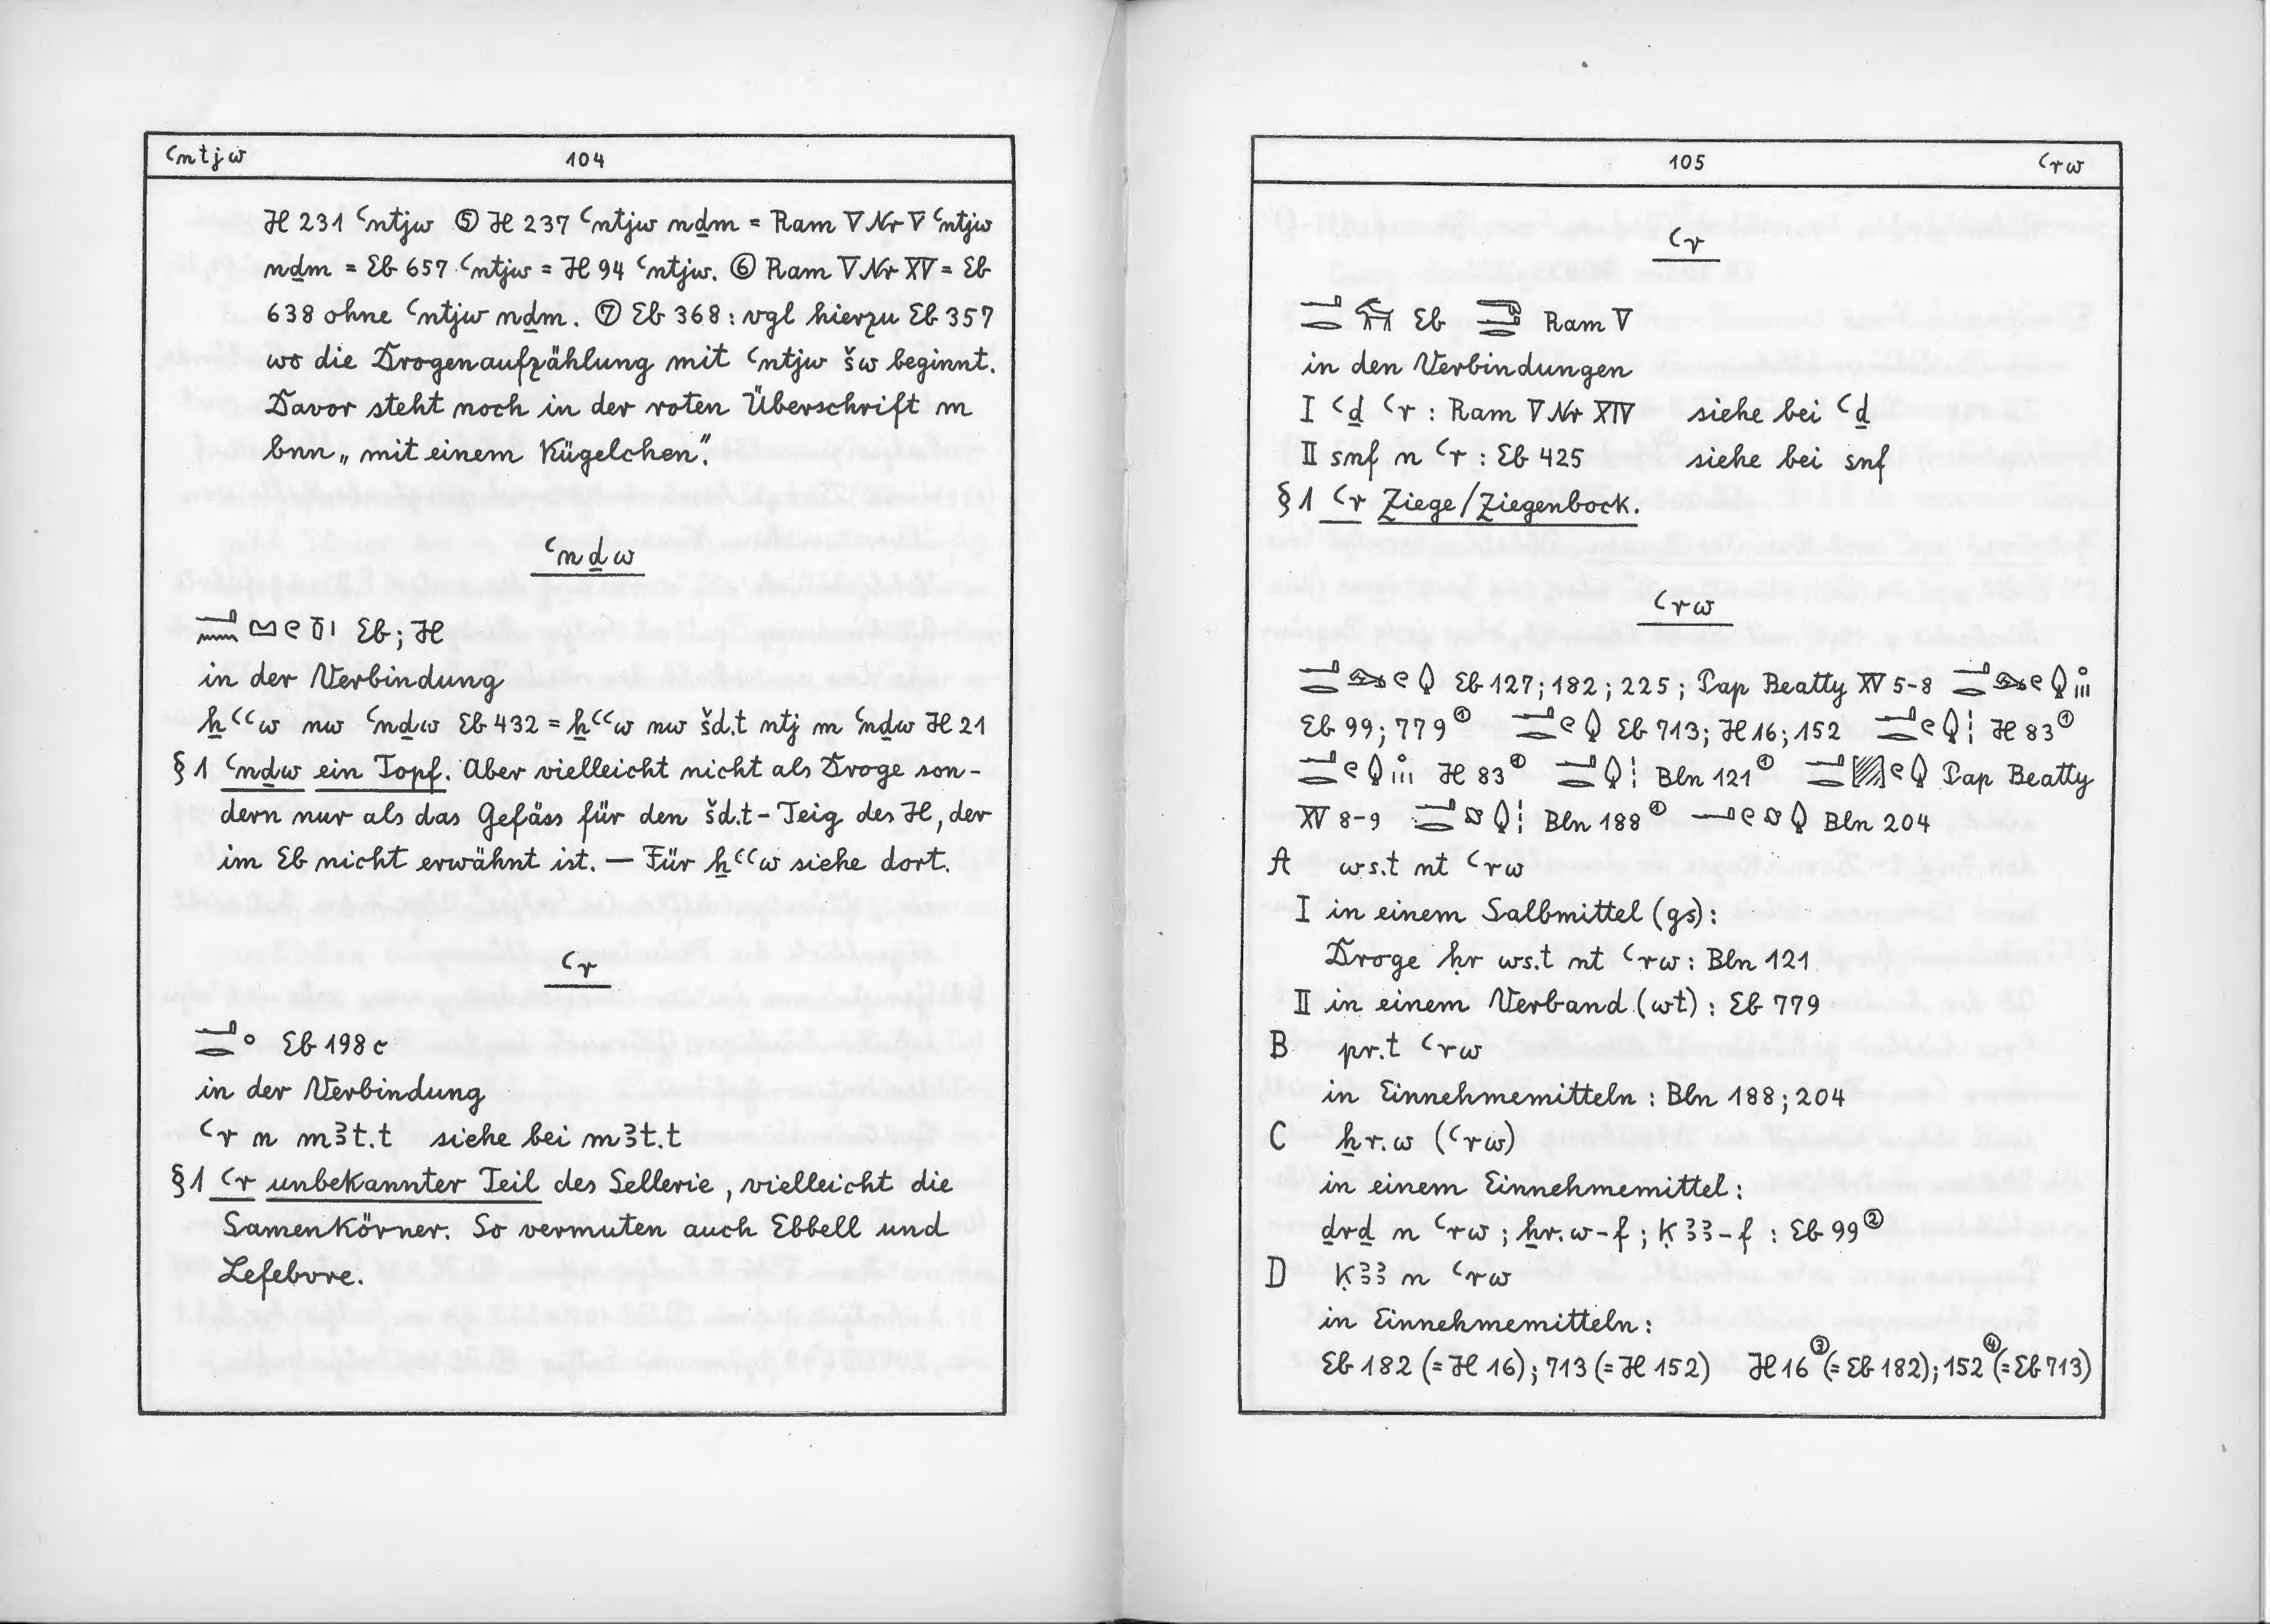 ꜥntjw 104
H 231 ꜥntjw ⑤ H 237 ꜥntjw nḏm = Ram V Nr V ꜥntjw
nḏm = Eb 657 ꜥntjw = H 94 ꜥntjw. ⑥ Ram V Nr XV = Eb
638 ohne ꜥntjw nḏm. ⑦ Eb 368: vgl hierzu Eb 357
wo die Drogenaufzählung mit ꜥntjw šw beginnt.
Davor steht noch in der roten Überschrift m
bnn „mit einem Kügelchen“.
ꜥnḏw
Eb; H
in der Verbindung
ẖꜥꜥw nw ꜥnḏw Eb 432 = ẖꜥꜥw nw šd.t ntj m ꜥnḏw H 21
§1 ꜥnḏw ein Topf. Aber vielleicht nicht als Droge son-
dern nur als das Gefäss für den šd.t-Teig des H, der
im Eb nicht erwähnt ist. — Für ẖꜥꜥw siehe dort.
ꜥr
Eb 198c
in der Verbindung
ꜥr n mꜣt.t siehe bei mꜣt.t
§1 ꜥr unbekannter Teil des Sellerie, vielleicht die
Samenkörner. So vermuten auch Ebbell und
Lefebvre.
105 ꜥrw
ꜥr
Eb Ram V
in den Verbindungen
I ꜥḏ ꜥr : Ram V Nr XIV siehe bei ꜥḏ
II snf n ꜥr : Eb 425 siehe bei snf
§1 ꜥr Ziege/Ziegenbock.
ꜥrw
Eb 127; 182; 225; Pap Beatty XV 5-8
Eb 99; 779① Eb 713; H 16; 152 H 83①
H 83① Bln 121① Pap Beatty
XV 8-9 Bln 188① Bln 204
A ws.t nt ꜥrw
I in einem Salbmittel (gs):
Droge ḥr ws.t nt ꜥrw: Bln 121
II in einem Verband (wt): Eb 779
B pr.t ꜥrw
in Einnehmemitteln: Bln 188; 204
C ẖr.w (ꜥrw)
in einem Einnehmemittel:
ḏrḏ n ꜥrw; ẖr.w-f; ḳꜣꜣ-f : Eb 99②
D ḳꜣꜣ n ꜥrw
in Einnehmemitteln:
Eb 182 (= H 16); 713 (= H 152) H 16③ (= Eb 182); 152④ (= Eb 713)